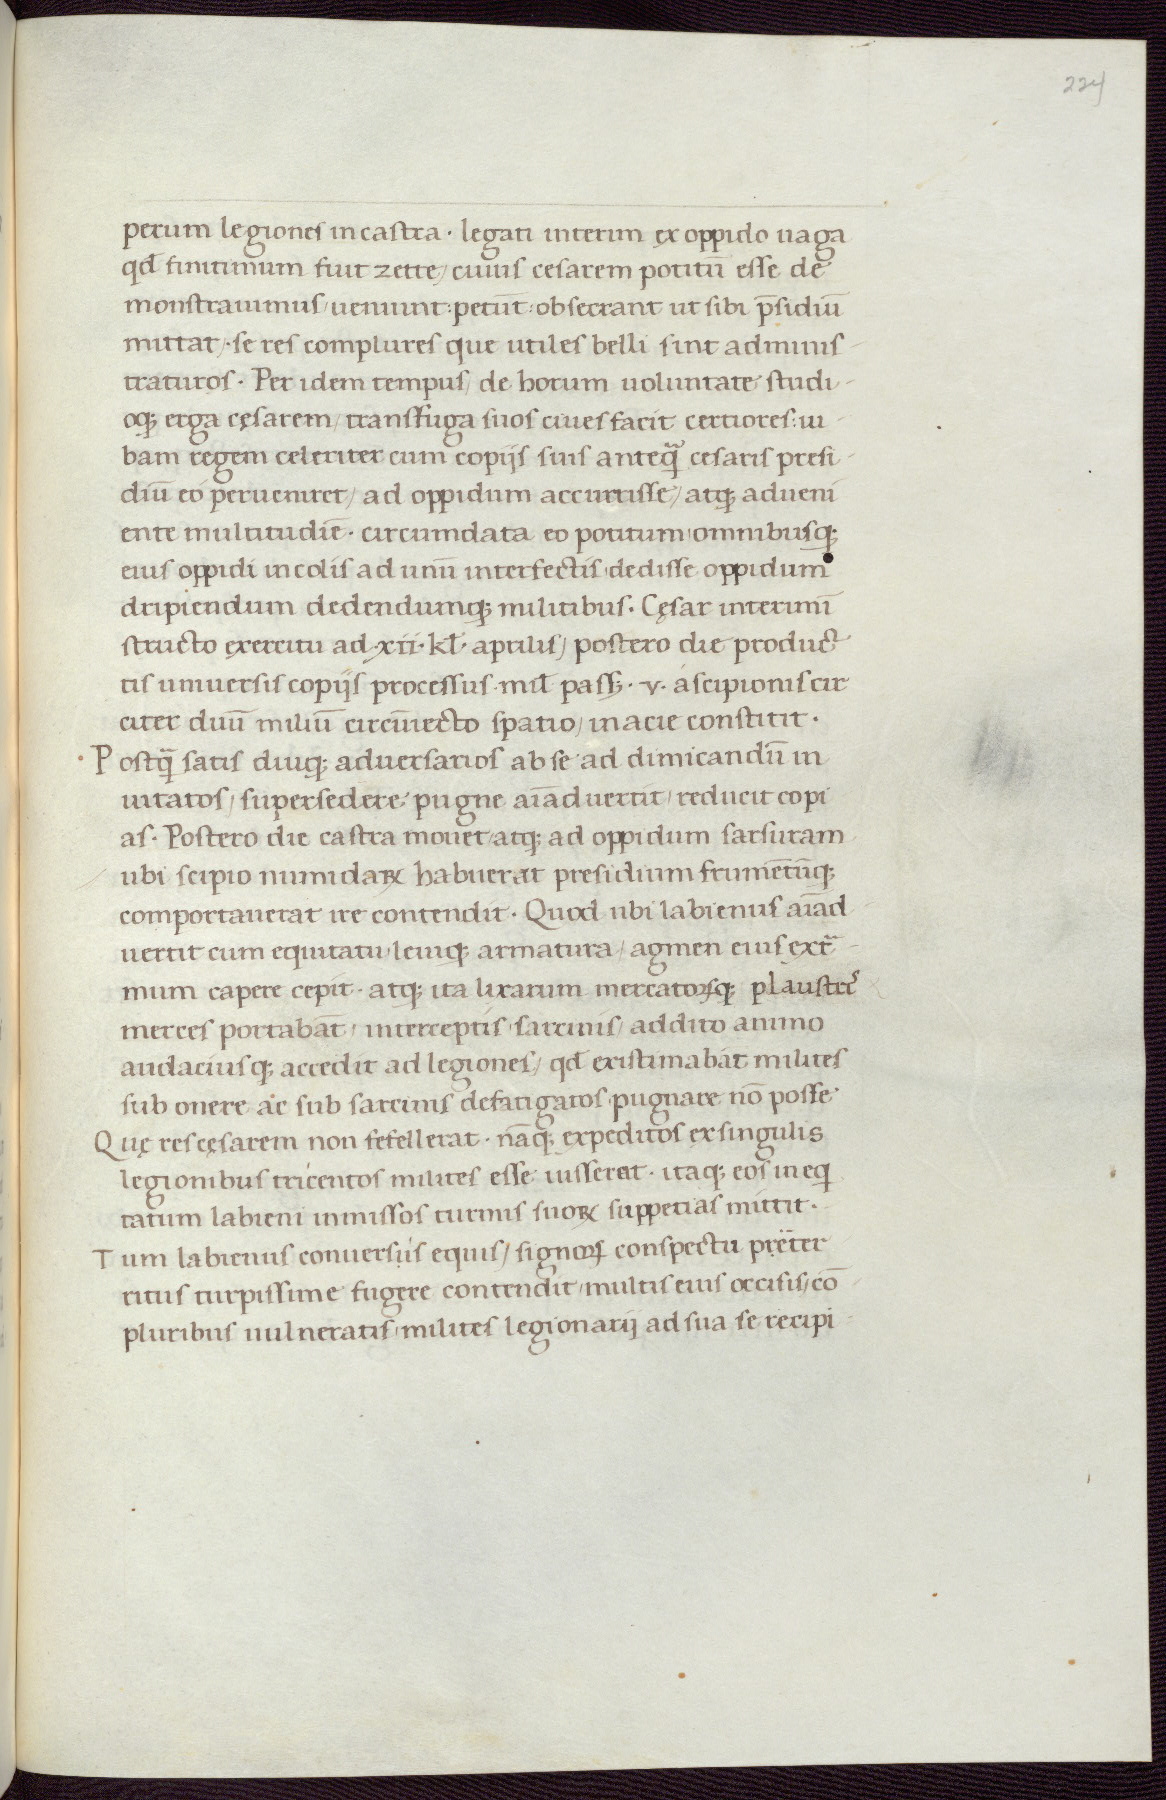 224
perum legiones in castra · legati interim ex oppido uaga
qđ finitimum fuit zette / cuius cesarem potitū esse de
monstrauimus / ueniunt : petūt : obsecrant ut sibi p̄sidiū
mittat / · se res complures que utiles belli sint adminis-
traturos · Per idem tempus / de horum uoluntate studi-
oq; erga cęsarem / transfuga suos ciues facit certiores : iu-
bam regem celeriter cum copijs suis anteq̃ cesaris presi-
diū eo perueniret / ad oppidum accurrisse / atq; adueni
ente multitudiē · circumdata eo potitum omnibusq;
eius oppidi incolis ad unū interfectis dedisse oppidum
diripiendum dedendumq; militibus · Cęsar interim ī
structo exercitu ad · xii · kł · aprilis / postero die produc
tis uniuersis copijs processus · mił pass · v · a scipionis cir
citer duū miliū circūiecto spatio / in acie constitit ·
Postq̃ satis diuq; aduersarios ab se ad dimicandū in
uitatos / supersedere pugne aīaduertit / reducit copi
as · Postero die castra mouet / atq; ad oppidum sarsuram
ubi scipio numidaꝝ habuerat presidium frumētūq;
comportauerat ire contendit · Quod ubi labienus aīad
uertit cum equitatu leuiq; armatura / agmen eius extr̄-
mum capere cepit · atq; ita lixarum mercatorūq; plaustrꝭ
merces portabāt / interceptis sarcinis / addito animo
audaciusq; accedit ad legiones / qđ existimabāt milites
sub onere ac sub sarcinis defatigatos pugnare nō posse
Quę res cęsarem non fefellerat · nāq; expeditos ex singulis
legionibus tricentos milites esse iusserat · itaq; eos in eqi
tatum labieni inmissos turmis suoꝝ suppetias mittit ·
Tum labienus conuersis equis / signoꝝ conspectu pręter
ritus turpissime fugere contendit / multis eius occisis / cō
pluribus uulneratis / milites legionarij ad sua se recipi-